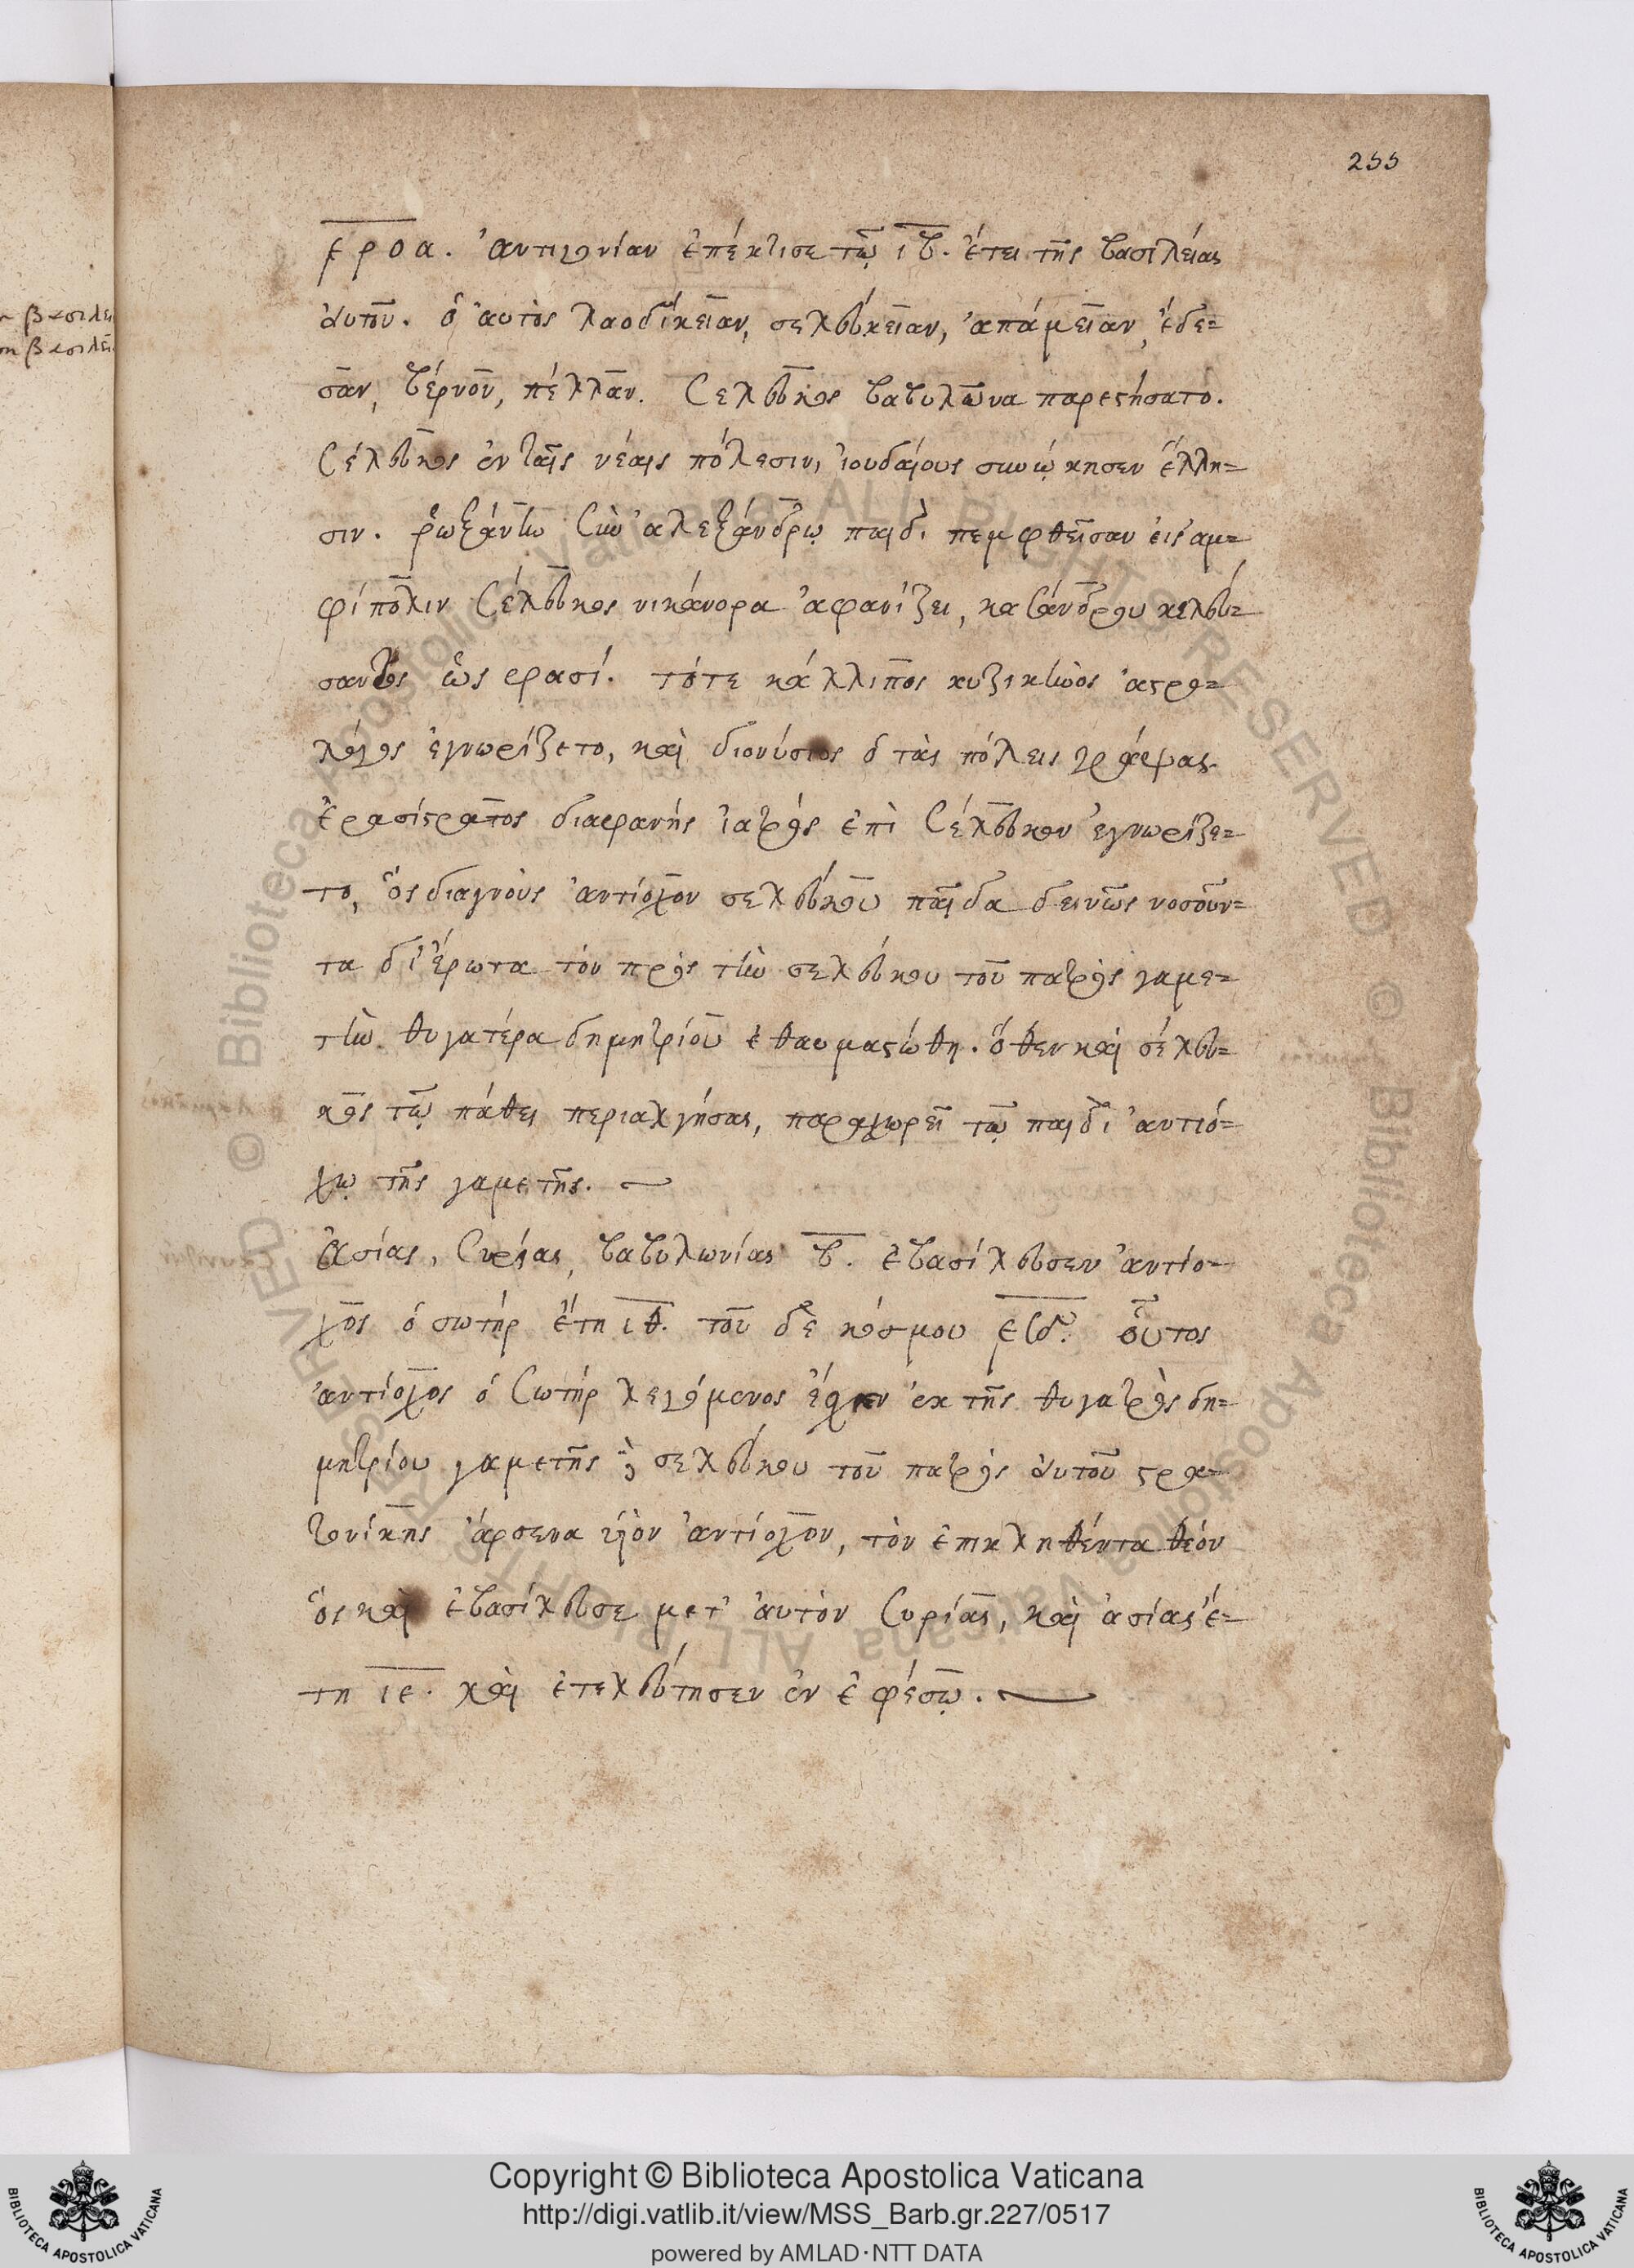 255
͵εροα. ἀντιγονίαν ἐπέκτισε τῷ ιβ. ἔτει τῆς βασιλείας
ἀυτοῦ. ὁ ἀυτὸς λαοδίκειαν, σελεύκειαν, ἀπάμειαν, ἐδε=
σαν, βέρνον, πέλλαν. Σελευκος βαβυλῶνα παρεστήσατο.
Σέλευκος ἐν ταῖς νέαις πόλεσιν, ἰουδαίους συνώκησεν ἕλλη=
σιν. ῥωξάνην σὺν ἀλεξάνδρῳ παιδὶ πεμφθεῖσαν εἰς ἀμ=
φίπολιν Σέλευκος νικάνορα ἀφανίζει, κασάνδρου κελεύ=
σαντος ὥς φασί. τότε κάλλιπος κυζικηνὸς ἀστρο=
λόγος ἐγνωρίζετο, καὶ διονύσιος ὁ τὰς πόλεις γράψας.
ἐρασίστρατος διαφανής ἰατρός ἐπὶ Σέλευκον ἐγνωρίζε=
το, ὅς διαγνοὺς ἀντίοχον σελεύκου παῖδα δεινῶς νοσοῦν=
τα δι' ἔρωτα τὸν πρὸς τὴν σελεύκου τοῦ πατρὸς γαμε=
τὴν θυγατέρα δημητρίου ἐθαυμαστώθη. ὅθεν καὶ σέλευ=
κος τῷ πάθει περιαλγήσας, παραχωρεῖ τῷ παιδὶ ἀντιό=
χῳ τῆς γαμετῆς.
ἀσίας, Συρίας, βαβυλωνίας β. ἐβασίλευσεν ἀντίο=
χος ὁ σωτήρ ἔτη ιθ. τοῦ δὲ κόσμου οὗτος
ἀντίοχος ὁ Σωτήρ λεγόμενος ἐκ τῆς θυγατρὸς δη=
μητρίου γαμετῆς σελεύκου τοῦ πατρὸς ἀυτοῦ στρα=
τονίκης ἄρσενα υἱὸν ἀντίοχον, τὸν ἐπικληθέντα θεόν
ὅς καὶ ἐβασίλευσε μετ' ἀυτὸν Συρίας, καὶ ἀσίας ἔ=
τη ιε. καὶ ἐτελεύτησεν ἐν ἐφέσῳ.
βασιλει
βασιλεί
Copyright © Biblioteca Apostolica Vaticana
http://digi.vatlib.it/view/MSS_Barb.gr.227/0517
powered by AMLAD·NTT DATA
BIBLIOTECA APOSTOLICA VATICANA
BIBLIOTECA APOSTOLICA VATICANA
© Biblioteca Apostolica Vaticana ALL RIGHTS RESERVED © Biblioteca Apostolica Vaticana ALL RIGHTS RESERVED